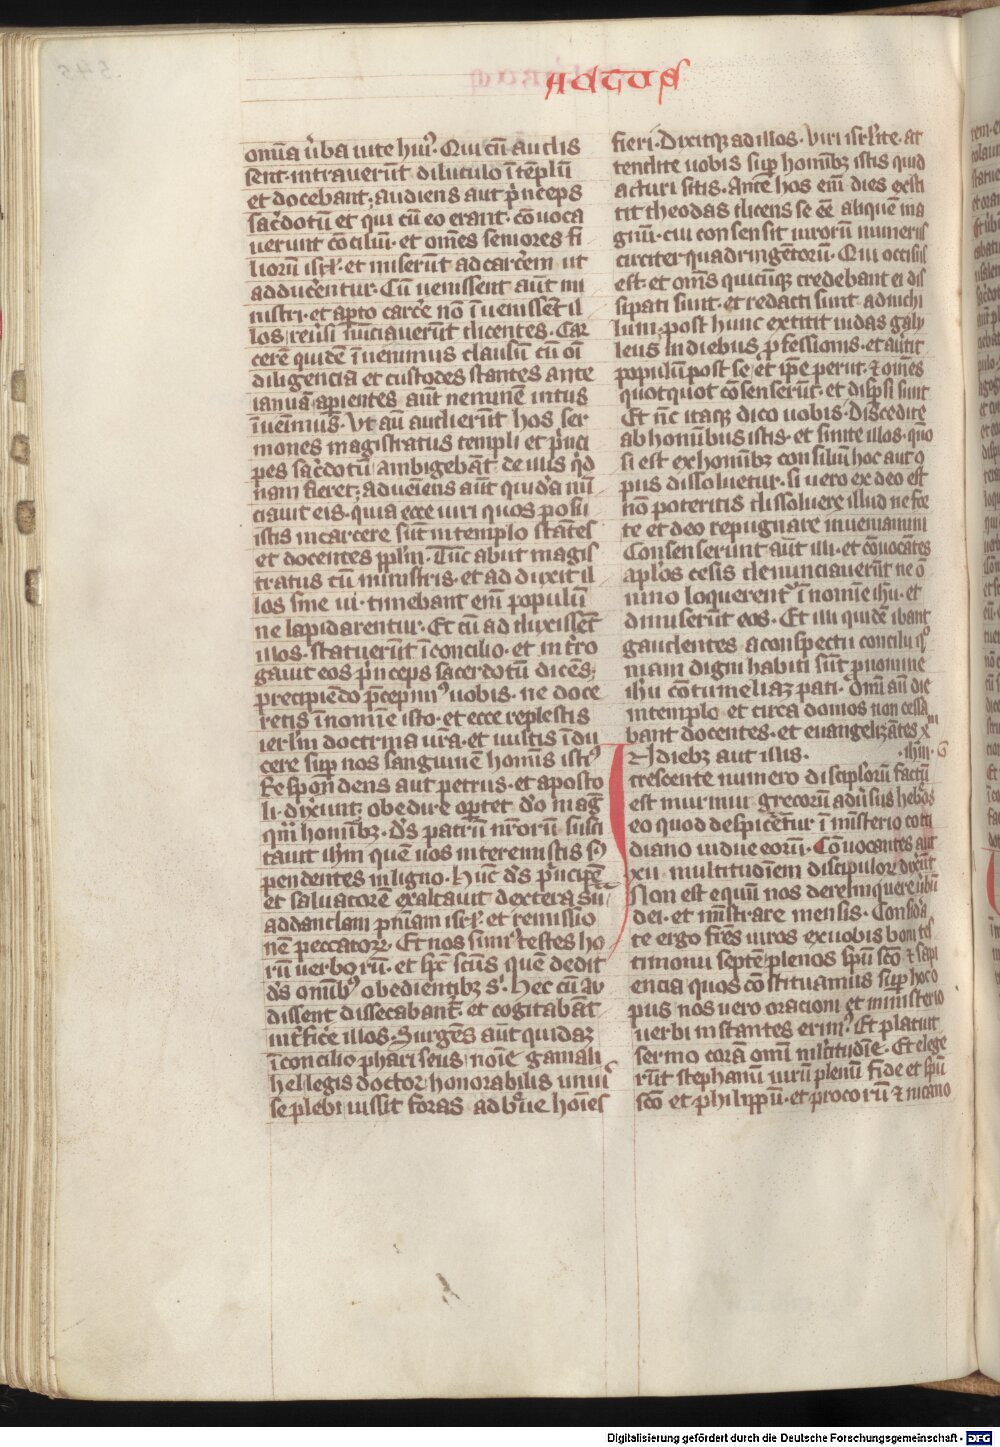 Actus
om̄a v̓ba uite hui᷒. Qui cū audis
sent· intrauerūt diluculo ī tēplū
et docebant; audiens aut p̓nceps
sac̓dotū et qui cū eo erant· cōuoca
uerunt cōciliū· et om̄es seniores fi
liorū isrl̓· et miserūt ad carc̓em ut
adduc̓entur· Cū uenissent aūt mi
nistri· et ap̓to carc̓e nō īuenissēt il
los reu̓si nūciauerūt dicentes· Car
cerē quidē īuenimus clausū cū oī
diligencia et custodes stantes ante
ianuā aperientes aūt neminē intus
īueim̄us· Vt aūt audierūt hos ser
mones magistratus templi et p̓nci
pes sac̓dotū ambigebāt de illis q̓d
nam fieret; adueiēns aūt quidā nū
ciauit eis· quia ecce uiri quos posui
istis in carcere sūt in templo stātes
et docentes pplm̄· Tūc abiit magis
tratus cū ministris· et adduxit il
los sine ui· timebant em̄ populū
ne lapidarentur· Et cū adduxissēt
illos· statuerūt ī concilio· et int̓ro
gauit eos p̓nceps sacerdotū dicēs;
precipiēdo p̄cepim᷒ uobis· ne doce
retis ī nomīe isto· et ecce replestis
ierlm̄ doctrina ur̄a· et uultis īdu
cere sup̄ nos sanguinē homīs isti᷒
Respondens aut petrus· et aposto
li· dixiunt; obedire op̄rtet d̓o maḡ
qm̄ homībꝫ· d̓s patrū nr̄orū susci
tauit ihm̄ quē uos interemistis s᷒
pendentes in ligno· Hūc d̓s p̓ncipē
et saluatorē exaltauit dextera su
ad dandam pn̄iam isrl̓· et remissio
nē peccatorꝝ· Et nos sum᷒ testes ho
rū uerborū· et sp̄c scūs quē dedit
d̓s om̄ibꝫ obedientibꝫ s̓· Hec cū au
dissent dissecabant̓· et cogitabāt
int̓fic̓e illos· Surgēs aūt quidaꝫ
ī concilio phariseus noīe gamali
hel legis doctor honorabilis uniu̓
se plebi iussit foras ad br̓ue hoīes
fieri· Dixitqꝫ ad illos· Viri isrl̓ite· at
tendite uobis sup̄ homībꝫ istis quid
acturi sitis· Ante hos em̄ dies exsti
tit theodas dicens se eē aliquē ma
gnū· cui consensit uirorū numerus
circiter quadringētorū· Qui occisus
est· et om̄s quicūqꝫ credebant ei dis
sipati sunt· et redacti sunt ad nichi
lum; post hunc extitit iudas galy
leus in diebus p̄fessionis· et au̓tit
populū post se; et ip̄e periit· ⁊ om̄es
quotquot cōsenserūt· et disp̓si sunt
Et nc̄ itaqꝫ dico uobis· Discedite
ab homībus istis· et sinite illos· qm̄o
si est ex homībꝫ consiliū hoc aut o
pus dissoluetur· si uero ex deo est
nō poteritis dissoluere illud ne for
te et deo repugnare inueniamini
Consenserunt aūt illi· et cōuocātes
aplōs cesis denunciauerūt ne ō
nino loquerent̓ ī nomīe ihū· et
dimiserūt eos· Et illi quidē ibant
gaudentes a conspectu concilii q᷒
niam digni habiti sūt p̓ nomine
ihū cōtumeliaꝫ pati· Om̄i aūt die
in templo et circa domos non cessa
bant docentes· et euangelizātes xm̄
N diebꝫ aut illis· ·ihm̄· 6
crescente numero disciplōrū factū
est murmur grecorū adu̓sus hebr̓os
eo quod despic̓etur ī mīsterio coti
diano uidue eorū· Cōuocantes aūt
xii multitudīem discipulorꝝ dixūt
Non est equū nos derelinquere u̓bū
dei· et mīstrare mensis· Consid̓a
te ergo fr̄es uiros ex uobis boni tes
timonii septē plenos spū scō ⁊ sapi
encia quos cōstituamus sup̄ hoc o
pus nos uero oracioni et ministerio
uerbi instantes erim᷒· Et placuit
sermo corā omī ml̄titudīe· Et elege
rūt stephanū uirū plenū fide et spū
scō et philippū· et procorū ⁊ nicano
Digitalisierung gefördert durch die Deutsche Forschungsgemeinschaft - DFG